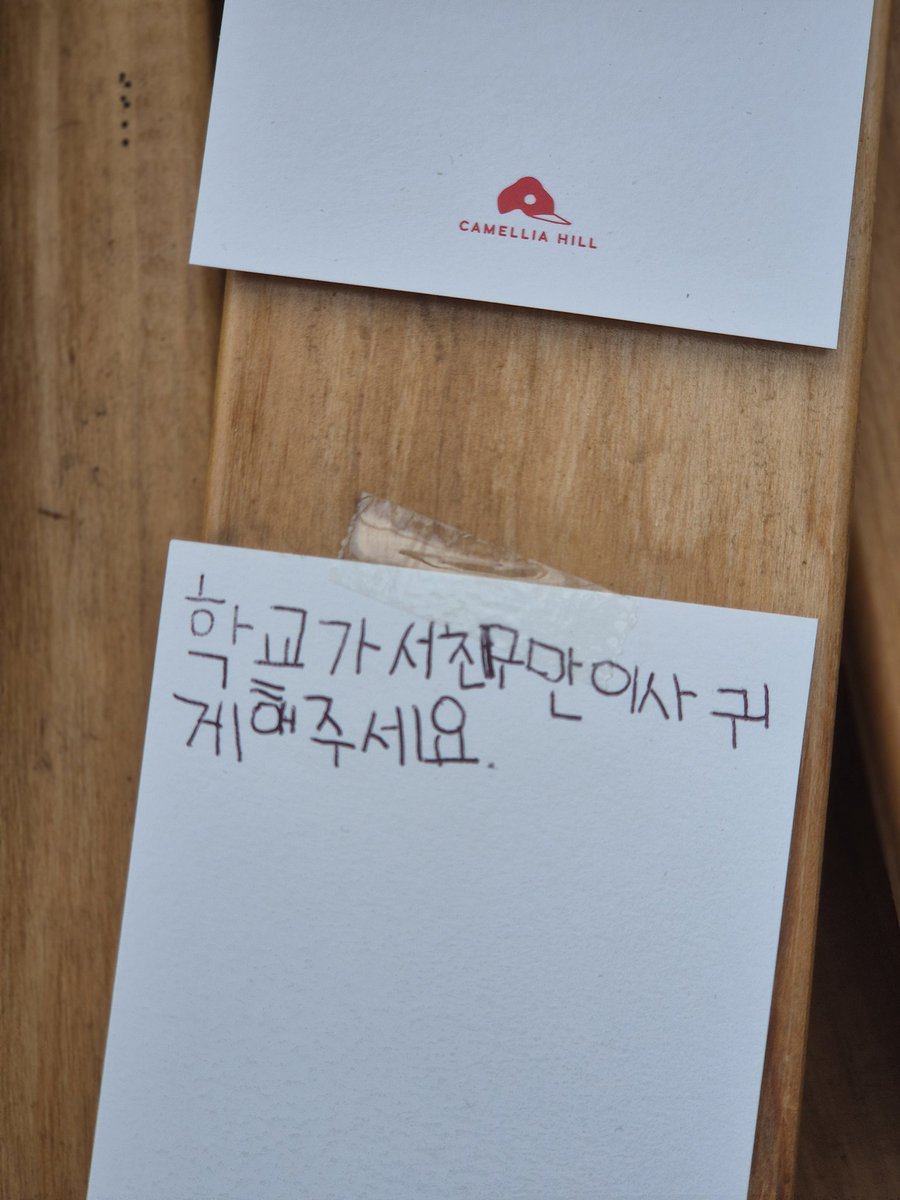 CAMELLIA HILL
학교가서친구만이사귀
게해주세요.